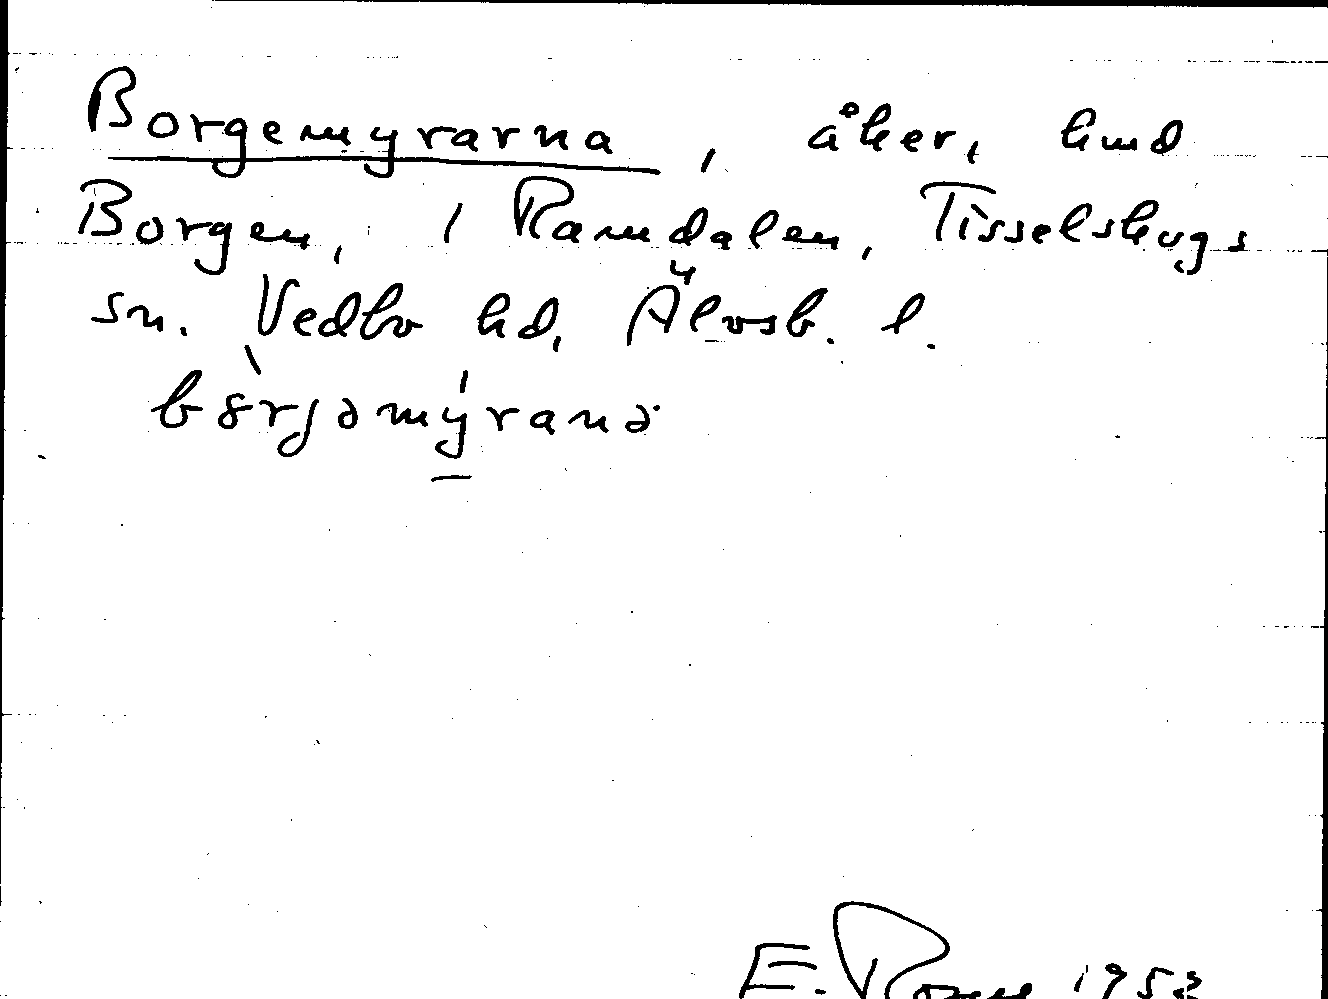 Borgemyrarna, åker, hmd
Borgen, i Ramdalen, Tisselskogs
sn. Vedbo hd, Älvsb. l.
E. 1953